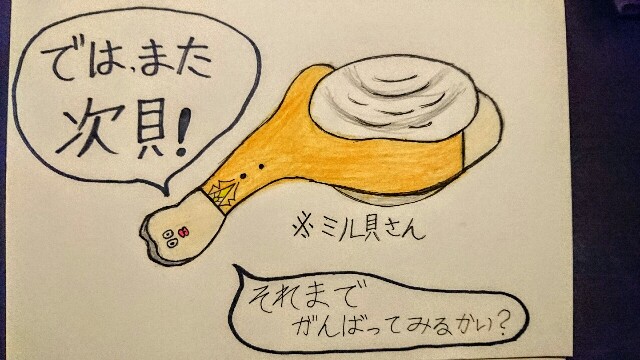 では、また
次貝!
※ミル貝さん
それまで
がんばってみるかい?